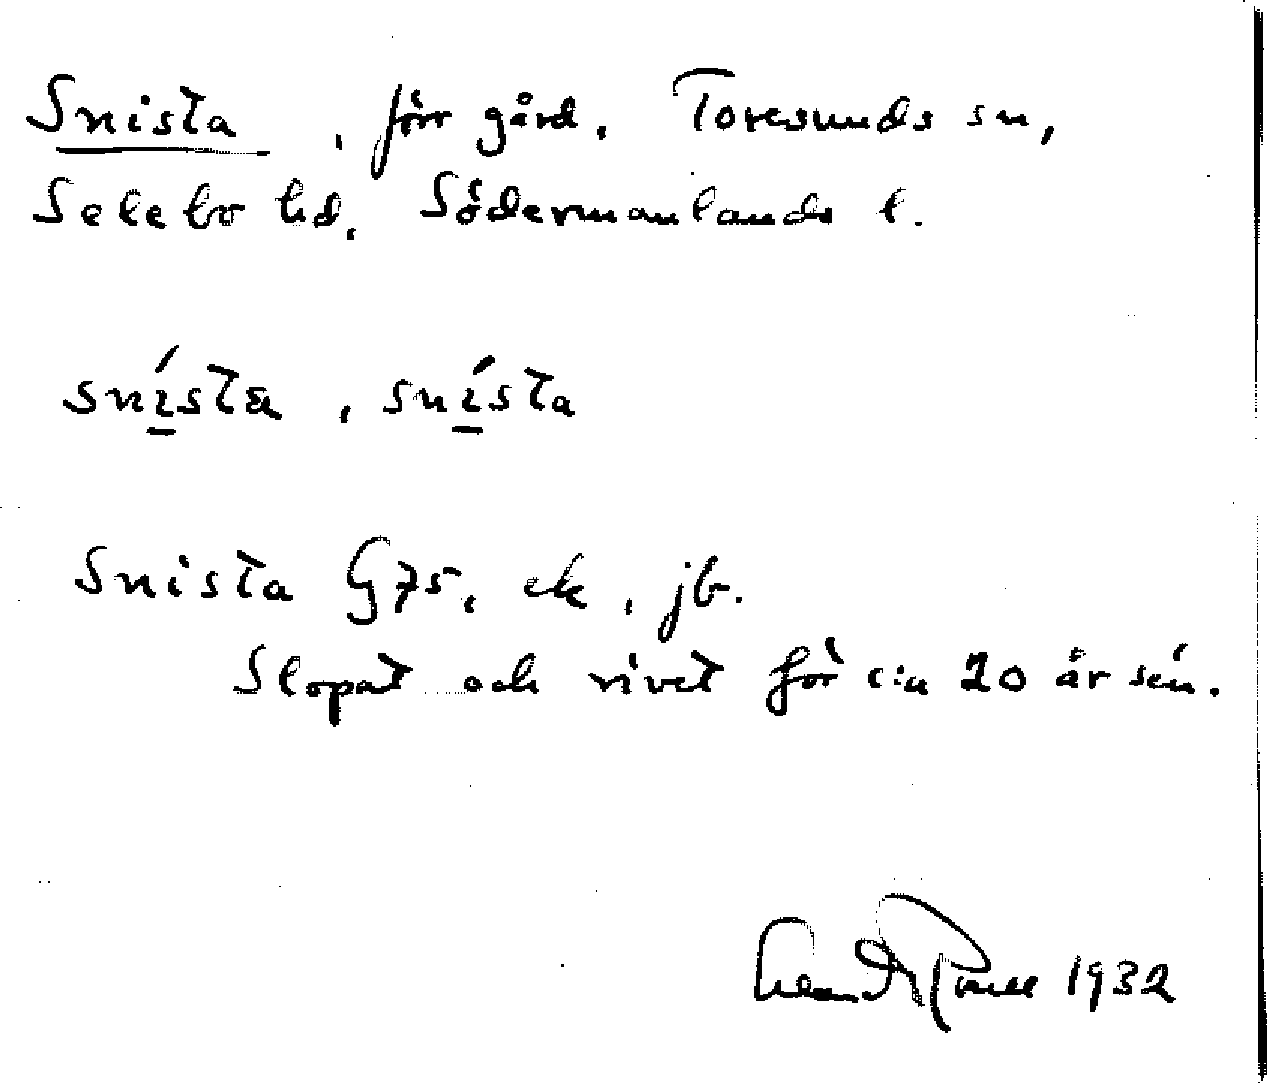 Snista, förr gård, Toresunds sn,
Selebo hd, Södermanlands l.
snísta, snísta
Snista G75, ek, jb.
Slopat och rivet för c:a 20 år sén.
1932